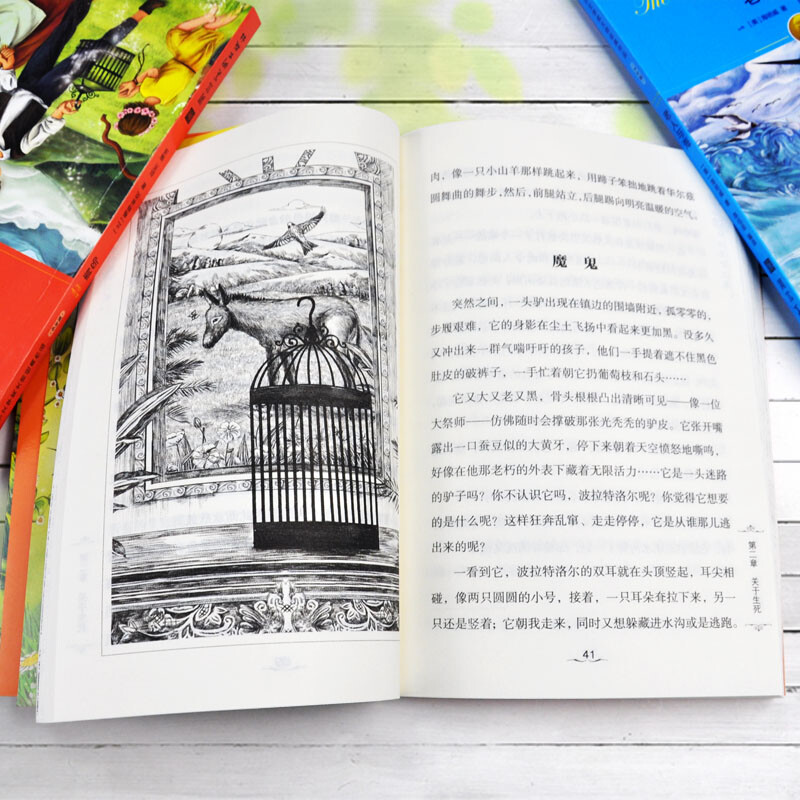 肉，像一只小山羊那样跳起来，用蹄子笨拙地跳着华尔兹
圆舞曲的舞步，然后，前腿站立，后腿踢向明亮温暖的空气。
魔 鬼
突然之间，一头驴出现在镇边的围墙附近，孤零零的，
步履艰难，它的身影在尘土飞扬中看起来更加黑。没多久
又冲出来一群气喘吁吁的孩子，他们一手提着遮不住黑色
肚皮的破裤子，一手忙着朝它扔葡萄枝和石头……
它又大又老又黑，骨头根根凸出清晰可见——像一位
大祭师——仿佛随时会撑破那张光秃秃的驴皮。它张开嘴
露出一口蚕豆似的大黄牙，停下来朝着天空愤怒地嘶鸣，
好像在他那老朽的外表下藏着无限活力……它是一头迷路
的驴子吗？你不认识它吗，波拉特洛尔呢？你觉得它想要
的是什么呢？这样狂奔乱窜、走走停停，它是从谁那儿逃
出来的呢？
一看到它，波拉特洛尔的双耳就在头顶竖起，耳尖相
碰，像两只圆圆的小号，接着，一只耳朵耷拉下来，另一
只还是竖着；它朝我走来，同时又想躲藏进水沟或是逃跑。
第二章 关于生死
41